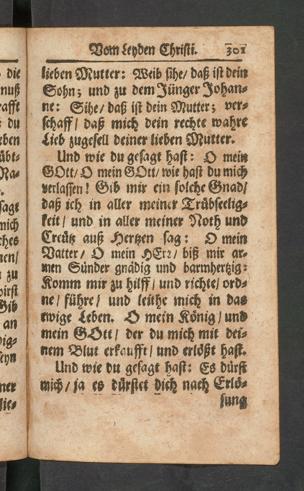 Vom Leyden Christi. 301
lieben Mutter: Weib sihe/ daß ist dein
Sohn; und zu dem Jünger Johan-
ne: Sihe/ daß ist dein Mutter; ver-
schaff/ daß mich dein rechte wahre
Lieb zugesell deiner lieben Mutter.
Und wie du gesagt hast: O mein
GOtt/ O mein GOtt/ wie hast du mich
verlassen! Gib mir ein solche Gnad/
daß ich in aller meiner Trübseelig-
keit/ und in aller meiner Noth und
Creütz auß Hertzen sag: O mein
Vatter/ O mein HErr/ biß mir ar-
men Sünder gnädig und barmhertzig:
Komm mir zu hilff/ und richte/ ord-
ne/ führe/ und leithe mich in das
ewige Leben. O mein König/ und
mein GOtt/ der du mich mit dei-
nem Blut erkaufft/ und erlößt hast.
Und wie du gesagt hast: Es dürst
mich/ ja es dürstet dich nach Erlö-
sung